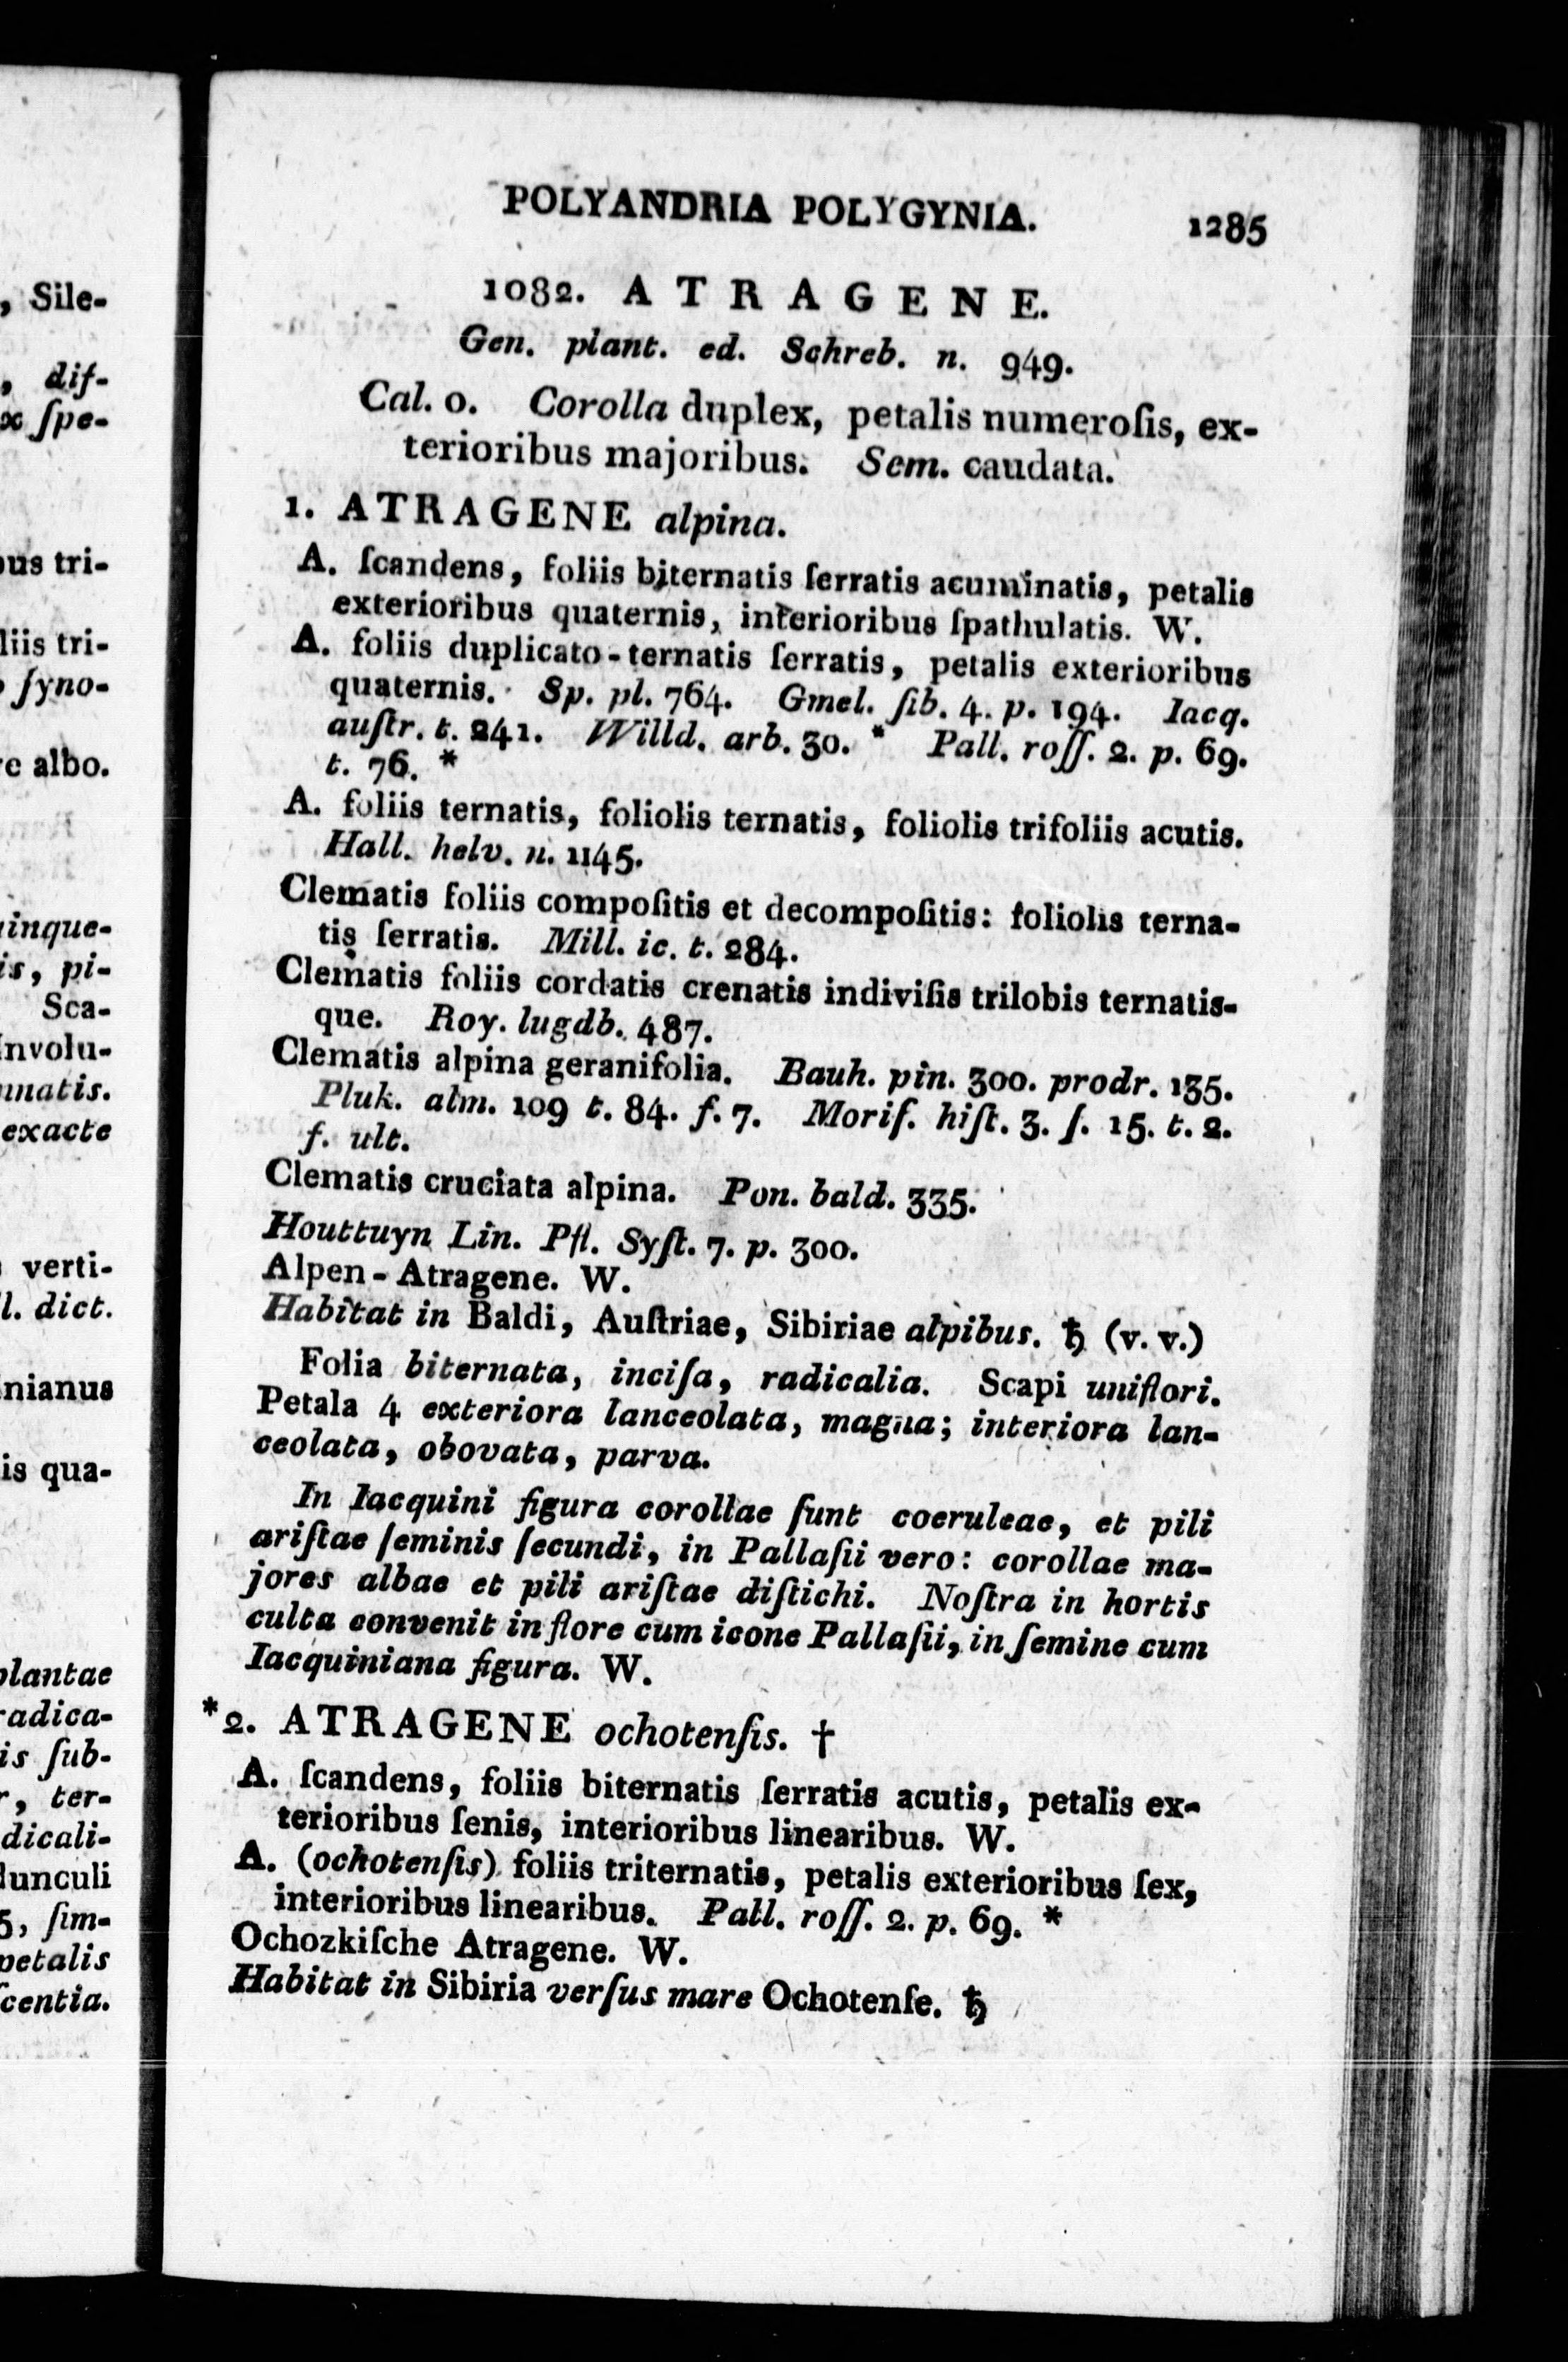 , Sile-
, diſ-
x ſpe-
ous tri-
liis tri-
ſyno-
re albo.
inque-
is, pi-
Sca-
Involu-
nnatis.
exacte
verti-
l. dict.
nianus
is qua-
plantae
radica-
is ſub-
r, ter-
dicali-
dunculi
5, ſim-
petalis
ſcentia.
POLYANDRIA POLYGYNIA. 1285
1082. ATRAGENE.
Gen. plant. ed. Schreb. n. 949.
Cal. 0. Corolla duplex, petalis numeroſis, ex-
terioribus majoribus. Sem. caudata.
1. ATRAGENE alpina.
A. ſcandens, foliis biternatis ſerratis acuminatis, petalis
exterioribus quaternis, interioribus ſpathulatis. W.
A. foliis duplicato-ternatis ſerratis, petalis exterioribus
quaternis. Sp. pl. 764. Gmel. ſib. 4. p. 194. Iacq.
auſtr. t. 241. Willd. arb. 30. * Pall. roſſ. 2. p. 69.
t. 76. *
A. foliis ternatis, foliolis ternatis, foliolis trifoliis acutis.
Hall. helv. n. 1145.
Clematis foliis compoſitis et decompoſitis: foliolis terna-
tis ſerratis. Mill. ic. t. 284.
Clematis foliis cordatis crenatis indiviſis trilobis ternatis-
que. Roy. lugdb. 487.
Clematis alpina geranifolia. Bauh. pin. 300. prodr. 135.
Pluk. alm. 109 t. 84. f. 7. Moriſ. hiſt. 3. ſ. 15. t. 2.
f. ult.
Clematis cruciata alpina. Pon. bald. 335.
Houttuyn Lin. Pfl. Syſt. 7. p. 300.
Alpen-Atragene. W.
Habitat in Baldi, Auſtriae, Sibiriae alpibus. ♄ (v. v.)
Folia biternata, inciſa, radicalia. Scapi uniflori.
Petala 4 exteriora lanceolata, magna; interiora lan-
ceolata, obovata, parva.
In Iacquini figura corollae ſunt coeruleae, et pili
ariſtae ſeminis ſecundi, in Pallaſii vero: corollae ma-
jores albae et pili ariſtae diſtichi. Noſtra in hortis
culta convenit in flore cum icone Pallaſii, in ſemine cum
Iacquiniana figura. W.
*2. ATRAGENE ochotenſis. †
A. ſcandens, foliis biternatis ſerratis acutis, petalis ex-
terioribus ſenis, interioribus linearibus. W.
A. (ochotenſis) foliis triternatis, petalis exterioribus ſex,
interioribus linearibus. Pall. roſſ. 2. p. 69. *
Ochozkiſche Atragene. W.
Habitat in Sibiria verſus mare Ochotenſe. ♄